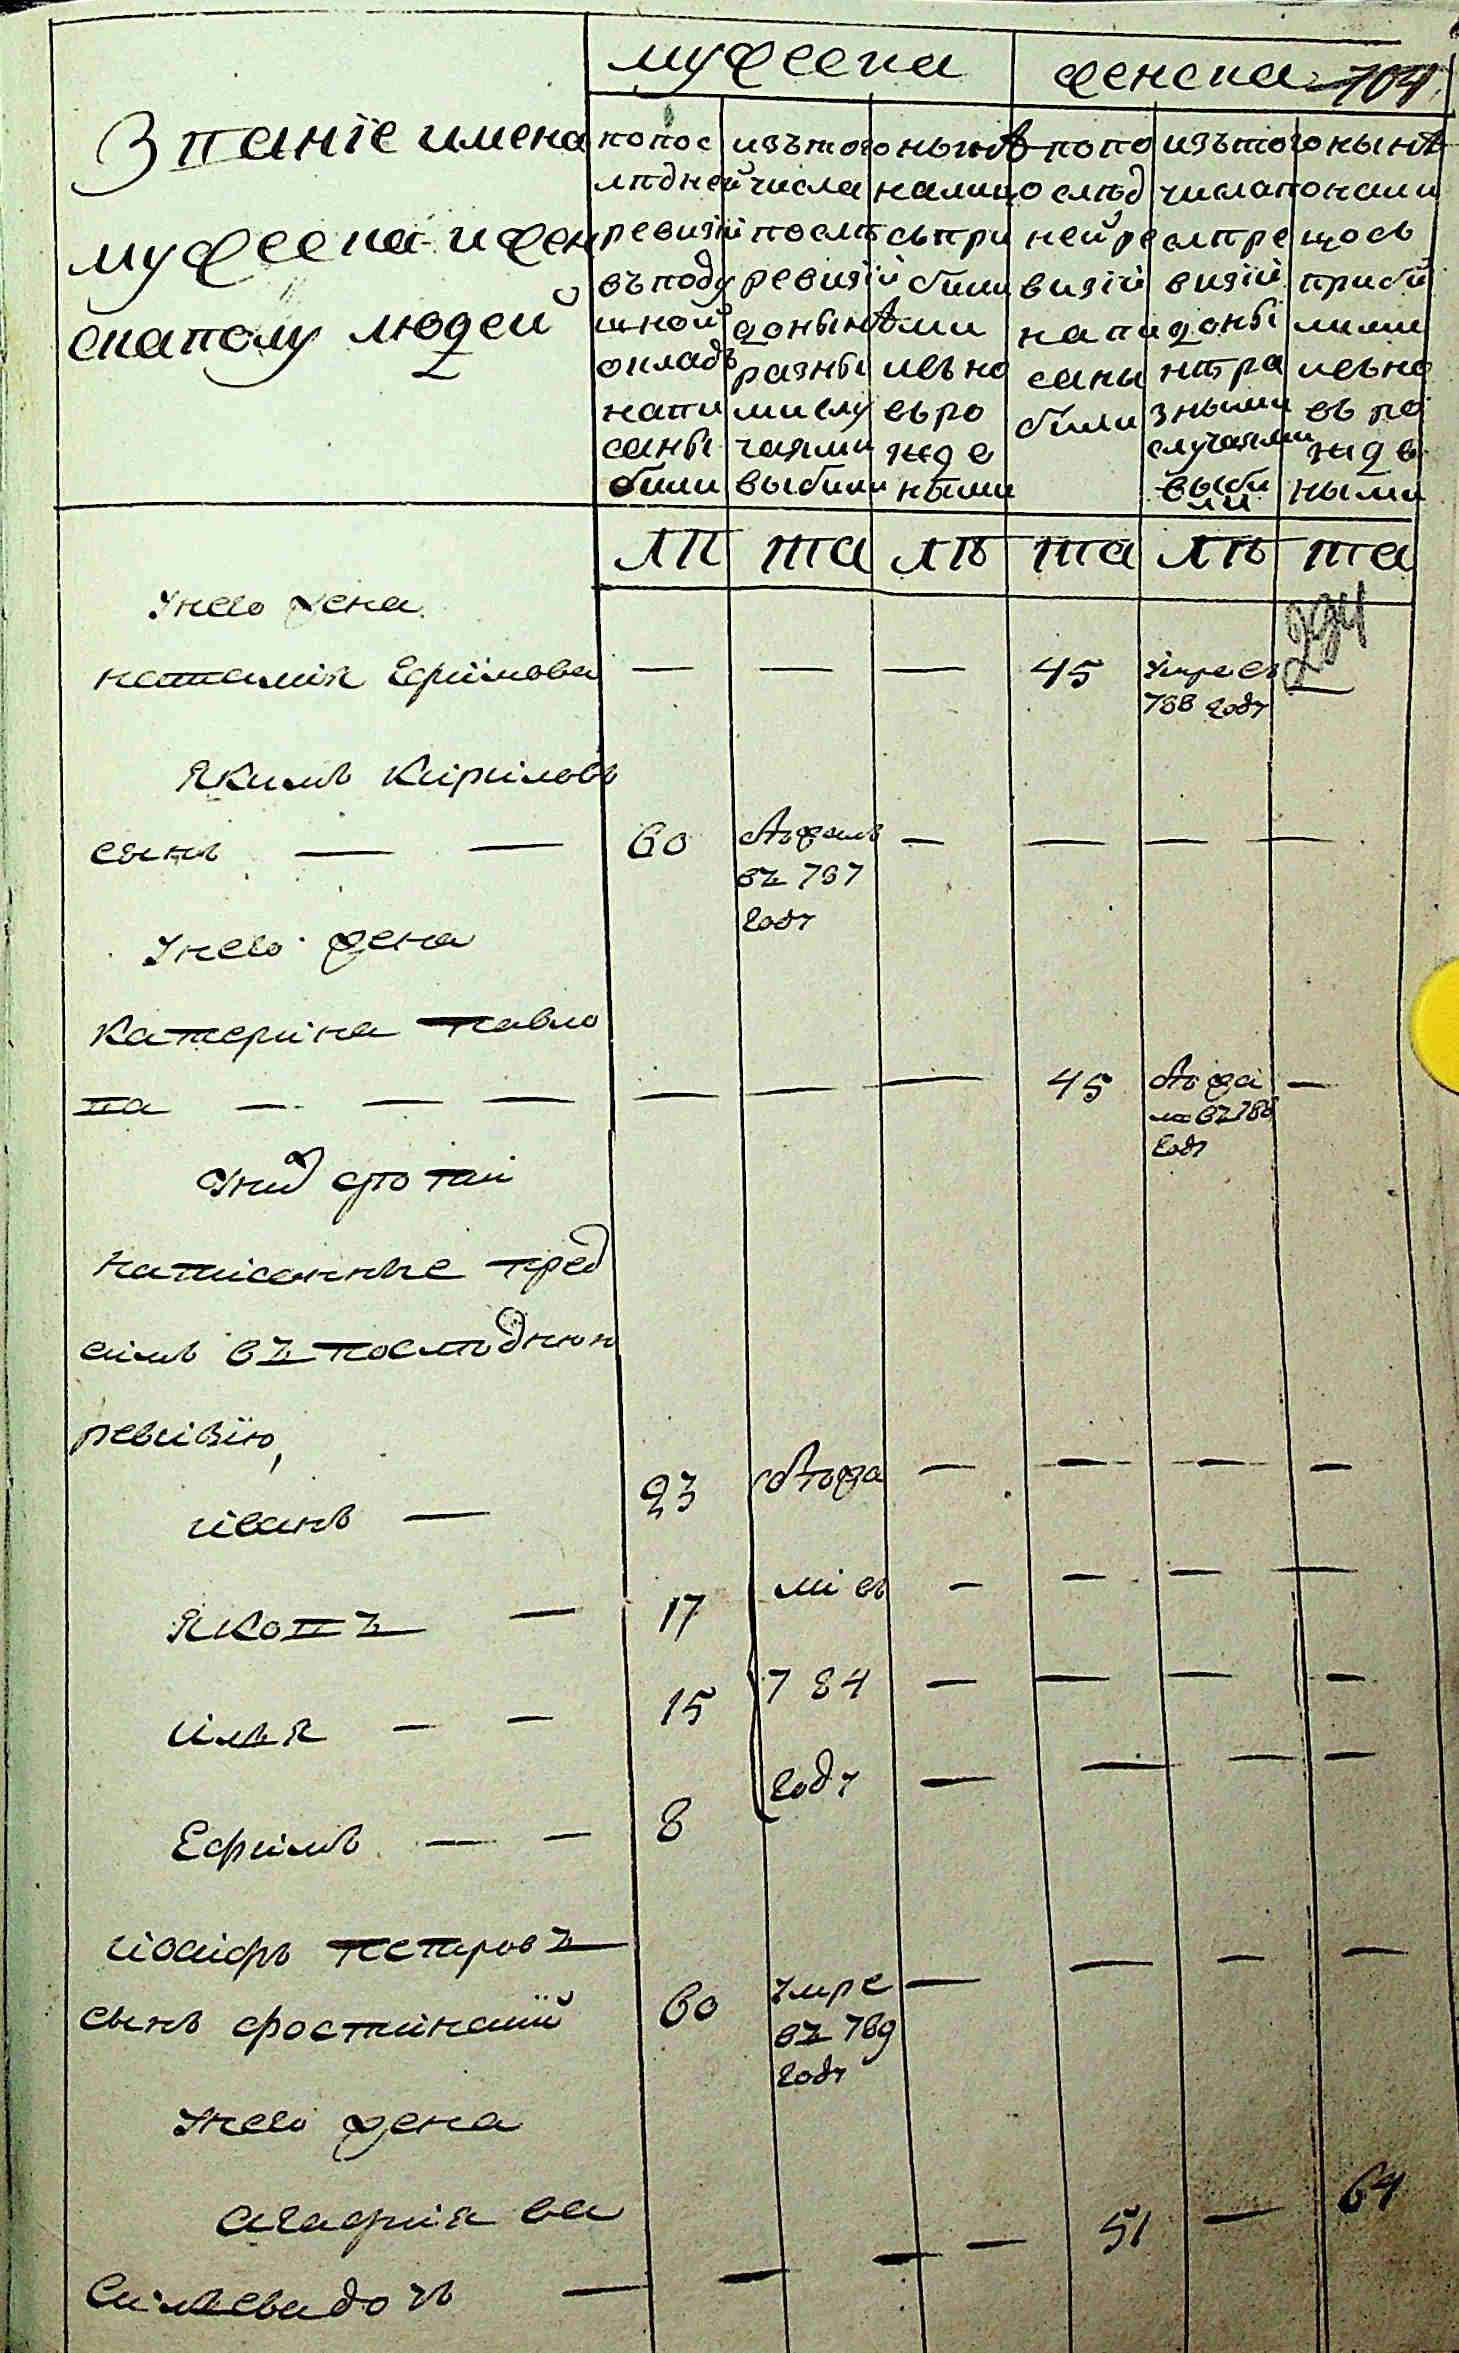 мужеска
женска 104
Званіе имена
мужеска и жен
скаполу людей
попос
лѣдней
ревизіи
въподу
шной
окладъ
напи
саны
были
изътого
числа
послѣ
ревизіи
донынѣ
разны
мислу
чаями
выбыли
нынѣ
налицо
сьпри
были
ми
ивьно
вьро
жде
ными
попо
слѣд
ней ре
визіи
напи
саны
были
изътого
числапо
слѣ ре
визіи
доны
нѣ ра
зными
случаями
выбы
ли
нынѣ
нали
цось
прибы
лыми
ивьно
вь ро
жде
ными
лѣ та лѣ та лѣ та
Унего жена
наталія Ефімова — — — 45 умре въ
788 году
Якимъ Киріловъ
сынъ — — 60 отданъ — — — —
въ 787
году
Унего жена
Катеріна павло
ва — — — — — — 45 отда —
на въ 788
году
Унид дѣтаи
напісанные пред
сімъ въ послѣднюю
ревизію,
іванъ — 23 отда — — — —
Яковъ — 17 ні въ — — — —
ілья — — 15 784 — — — —
Ефімъ — — 8 году — — — —
іосіфъ петровъ
сынъ фостінаній 60 умре — — — —
въ 789
году
Унего жена
агафия ва
сильева дочь — — — — 51 — 64